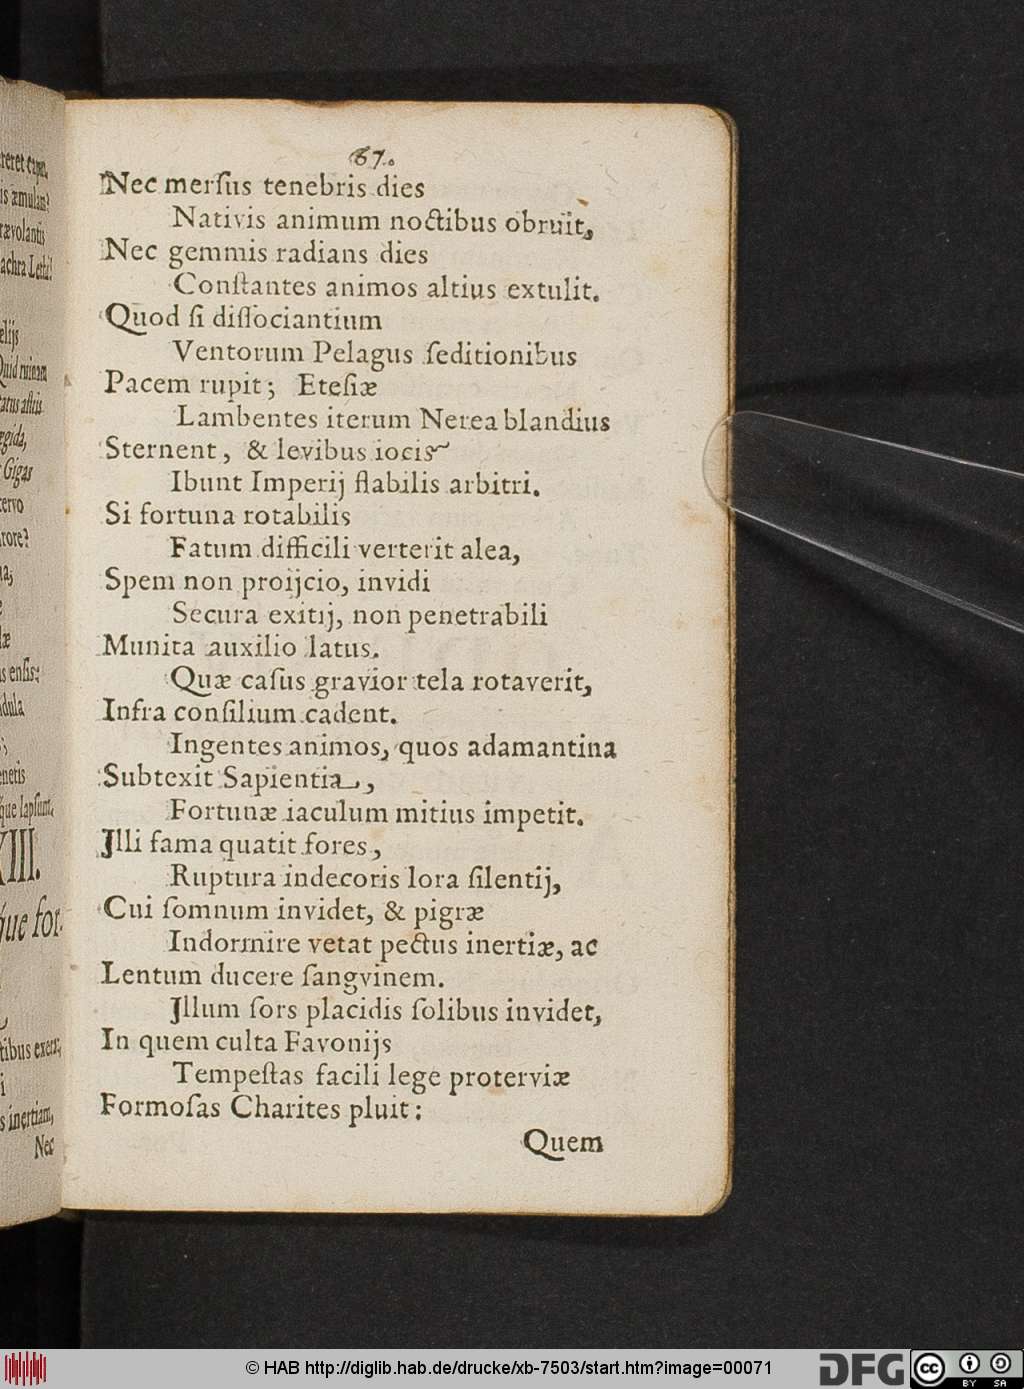 reret caput,
is æmulam?
rævolantis
elijs
Quid ruinam
ægida,
Gigas
XIII.
que for-
s inertiam,
Nec
67.
Nec merſus tenebris dies
Nativis animum noctibus obruit,
Nec gemmis radians dies
Conſtantes animos altius extulit.
Quod ſi diſſociantium
Ventorum Pelagus ſeditionibus
Pacem rupit; Eteſiæ
Lambentes iterum Nerea blandius
Sternent, & levibus iocis
Ibunt Imperij ſlabilis arbitri.
Si fortuna rotabilis
Fatum difficili verterit alea,
Spem non proijcio, invidi
Secura exitij, non penetrabili
Munita auxilio latus.
Quæ caſus gravior tela rotaverit,
Infra conſilium cadent.
Ingentes animos, quos adamantina
Subtexit Sapientia,
Fortunæ iaculum mitius impetit.
Illi fama quatit fores,
Ruptura indecoris lora ſilentij,
Cui ſomnum invidet, & pigræ
Indormire vetat pectus inertiæ, ac
Lentum ducere ſangvinem.
Illum ſors placidis ſolibus invidet,
In quem culta Favonijs
Tempeſtas facili lege proterviæ
Formoſas Charites pluit:
Quem
© HAB http://diglib.hab.de/drucke/xb-7503/start.htm?image=00071
DFG
cc BY SA